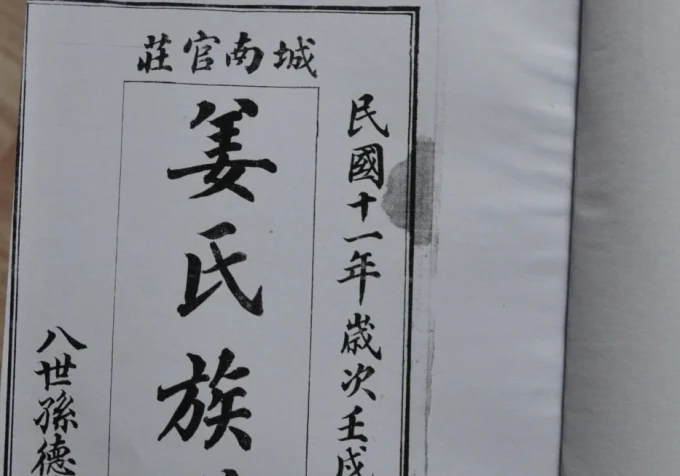 城南官莊
民國十一年歲次壬戌
姜氏族
八世孫德